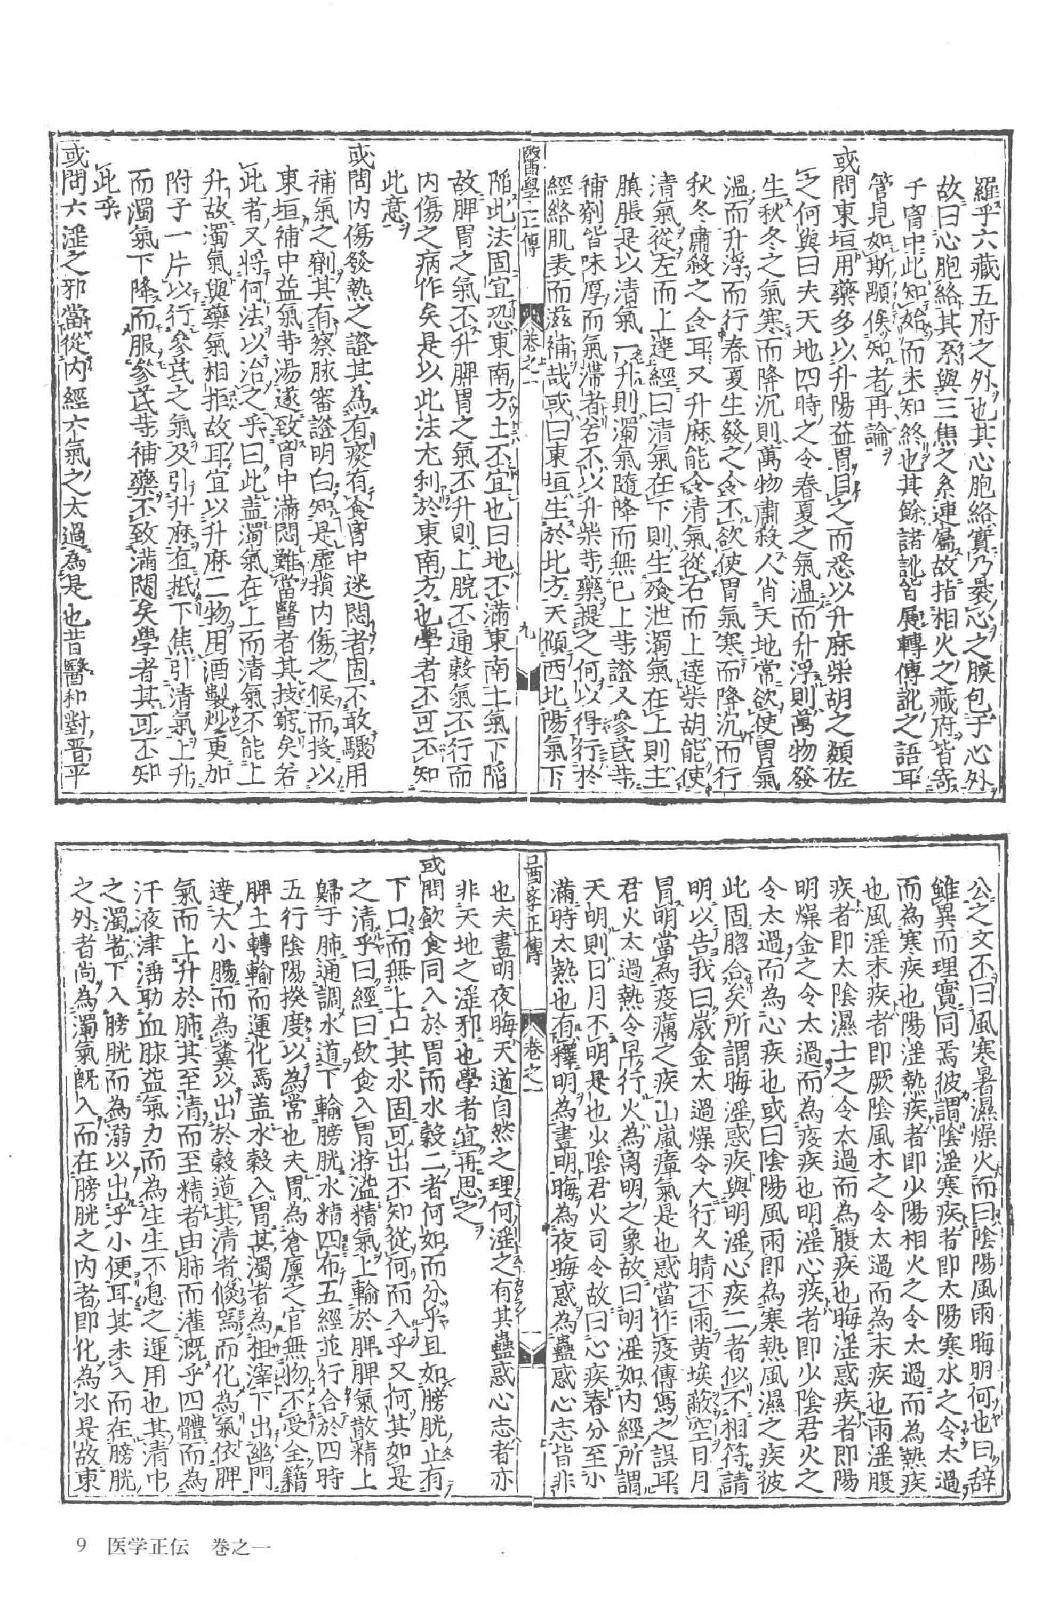 羅乎六藏五府之外也其心胞絡實乃裹心之膜包于心外
故曰心胞絡其系與三焦之系連屬故指相火之藏府皆寄
于胷中此知始而未知終也其餘諸訛皆展轉傳訛之語耳
管見如斯顒俟知者再論
或問東垣用藥多以升陽益胃目之而悉以升麻柴胡之類佐
之何與曰夫天地四時之令春夏之氣温而升浮則萬物發
生秋冬之氣寒而降沉則萬物肅殺人肖天地常欲使胃氣
温而升浮而行春夏生發之令不欲使胃氣寒而降沉而行
秋冬肅殺之令耳又升麻能令清氣從右而上達柴胡能使
清氣從左而上達經曰清氣在下則生飱泄濁氣在上則生
䐜脹是以清氣一升則濁氣隨降而無已上等證又參芪等
補劑皆味厚而氣滯者若不以升柴等藥提之何以得行於
經絡肌表而滋補哉或曰東垣生於北方天傾西北陽氣下
醫學正傳 卷之一 九
陷此法固宜恐東南方土不宜也曰地不滿東南土氣下陷
故脾胃之氣不升脾胃之氣不升則上脘不通穀氣不行而
内傷之病作矣是以此法尤利於東南方也學者不可不知
此意
或問内傷發熱之證其為有痰有食胷中迷悶者固不敢驟用
補氣之劑其有察脉審證明白知是虛損内傷之候而投以
東垣補中益氣等湯遂致胷中滿悶難當醫者其技窮矣若
此者又將何法以治之乎曰此盖濁氣在上而清氣不能上
升故濁氣與藥氣相拒故耳宜以升麻二物用酒製炒更加
附子一片以行參芪之氣及引升麻直抵下焦引清氣上升
而濁氣下降而服參芪等補藥不致滿悶矣學者其可不知
此乎
或問六淫之邪當從内經六氣之太過為是也昔醫和對晋平
公之文不曰風寒暑濕燥火而曰陰陽風雨晦明何也曰辞
雖異而理實同焉彼謂陰淫寒疾者即太陽寒水之令太過
而為寒疾也陽淫熱疾者即少陽相火之令太過而為熱疾
也風淫末疾者即厥陰風木之令太過而為末疾也雨淫腹
疾者即太陰濕土之令太過而為腹疾也晦淫惑疾者即陽
明燥金之令太過而為疫疾也明淫心疾者即少陰君火之
令太過而為心疾也或曰陰陽風雨即為寒熱風濕之疾彼
此固脗合矣所謂晦淫惑疾與明淫心疾二者似不相符請
明以告我曰歲金太過燥令大行久晴不雨黄埃蔽空日月
冐明當為疫癘之疾山嵐瘴氣是也惑當作疫傳寫之誤耳
君火太過熱令早行火為离明之象故曰明淫如内經所謂
天明則日月不明是也少陰君火司令故曰心疾春分至小
滿時太熱也有釋明為晝明晦為夜晦惑為蠱惑心志皆非
醫學正傳 卷之一
也夫晝明夜晦天道自然之理何淫之有其蠱惑心志者亦
非天地之淫邪也學者宜再思之
或問飲食同入於胃而水穀二者何如而分乎且如膀胱止有
下口而無上口其水固可出不知從何而入乎又何其如是
之清乎曰經曰飲食入胃游溢精氣上輸於脾脾氣散精上
歸于肺通調水道下輸膀胱水精四布五經並行合於四時
五行陰陽揆度以為常也夫胃為倉廪之官無物不受全籍
脾土轉輸而運化焉盖水穀入胃其濁者為柤滓下出幽門
達大小腸而為糞以出於穀道其清者倐焉而化為氣依脾
氣而上升於肺其至清而至精者由肺而灌溉乎四體而為
汗液津涶助血脉益氣力而為生生不息之運用也其清中
之濁者下入膀胱而為溺以出乎小便耳其未入而在膀胱
之外者尚為濁氣既入而在膀胱之内者即化為水是故東
9 医学正伝 巻之一